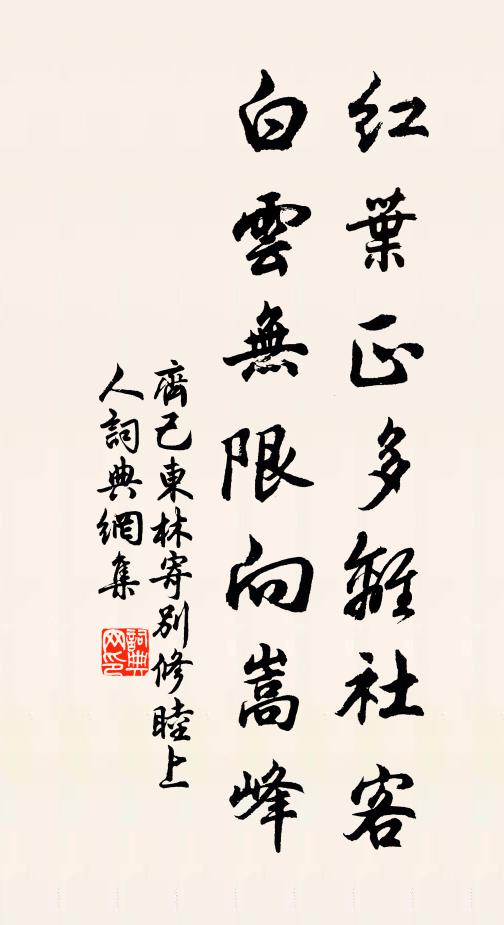 紅葉正多離社客
白雲無限向嵩峰
齊己東林寄別修睦上
人詞典網集
詞典网印